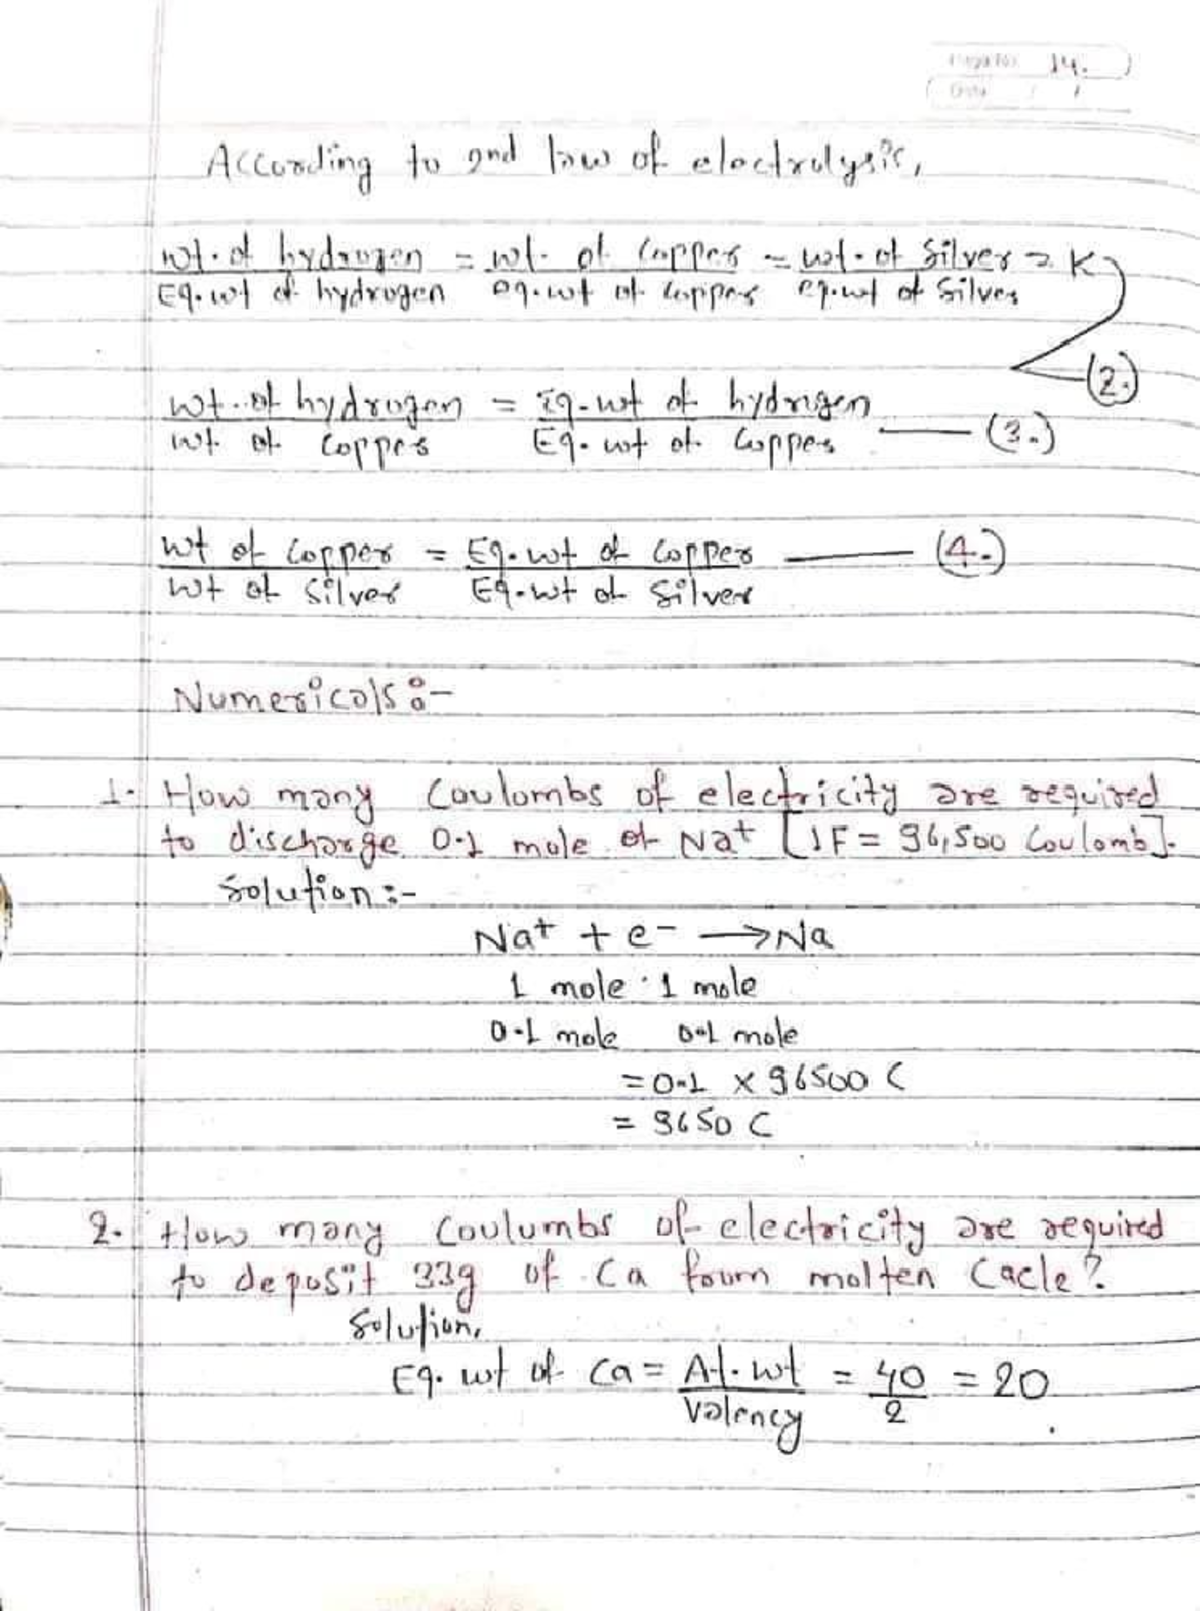 Page No. 14.
Date / /
According to 2nd law of electrolysis,
wt. of hydrogen = wt. of Copper = wt. of Silver = K
Eq. wt of hydrogen eq. wt of copper eq. wt of Silver
(2.)
wt. of hydrogen = Eq. wt of hydrogen
wt. of Copper Eq. wt of Copper (3.)
wt of Copper = Eq. wt of Copper (4.)
wt of Silver Eq. wt of Silver
Numericals :-
1. How many Coulombs of electricity are required
to discharge 0.1 mole of Na+ [1F = 96,500 Coulomb].
Solution :-
Na+ + e- → Na
1 mole 1 mole
0.1 mole 0.1 mole
= 0.1 × 96500 C
= 9650 C
2. How many Coulumbs of electricity are required
to deposit 33g of Ca foum molten Cacle?
Solution,
Eq. wt of Ca = At. wt = 40 = 20
Valency 2